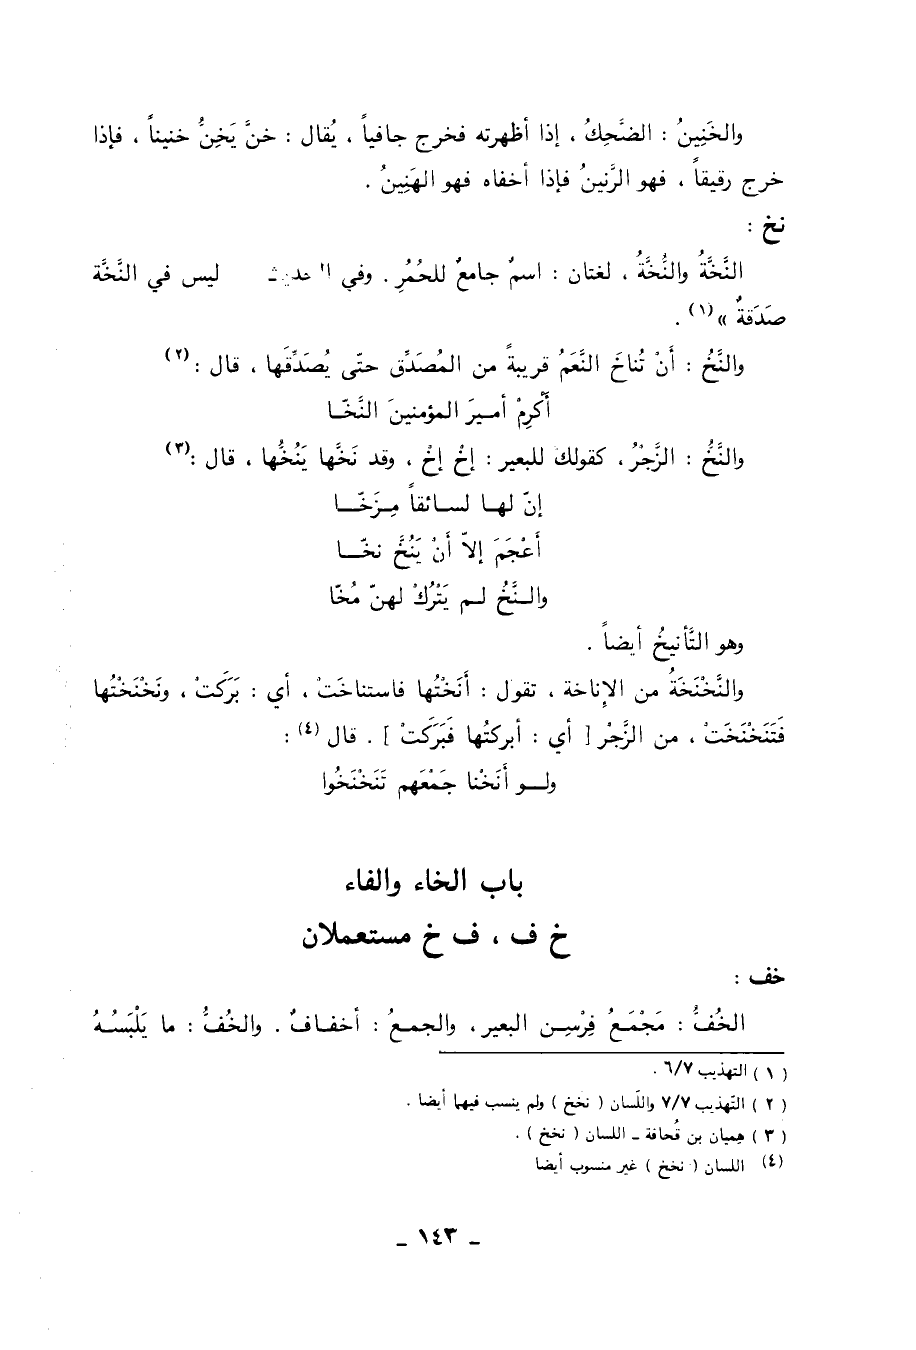 والخَنِينُ : الضَّحِكُ ، إذا أظهرته فخرج جافياً ، يُقال : خنَّ يَخِنُّ خنيناً ، فإذا
خرج رقيقاً ، فهو الرَّنينُ فإذا أخفاه فهو الهَنِينُ .
نخ :
النَّخَّةُ والنُّخَّةُ ، لغتان : اسمٌ جامعٌ للحُمُرِ . وفي الحديث ليس في النَّخَّة
صَدَقةٌ »(١) .
والنَّخُّ : أَنْ تُناخَ النَّعَمُ قريبةً من المُصَدِّق حتّى يُصَدِّقَها ، قال :(٢)
أَكْرِمْ أمـيرَ المؤمنينَ النَّخّـا
والنَّخُّ : الزَّجْرُ ، كقولك للبعير : إخْ إخْ ، وقد نَخَّها يَنُخُّها ، قال :(٣)
إنّ لهـا لسـائقاً مِـزَخّـــا
أَعْجَمَ إلاّ أَنْ يَنُخَّ نخّـــا
والـنَّخُّ لـم يَتْرُكْ لهنّ مُخّا
وهو التَّأنيخُ أيضاً .
والنَّخْنَخَةُ من الإناخة ، تقول : أَنَخْتُها فاستناخَتْ ، أي : بَرَكَتْ ، ونَخْنَخْتُها
فَتَنَخْنَخَتْ ، من الزَّجْر [ أي : أبركتُها فَبَرَكَتْ ] . قال (٤) :
ولـــو أَنَخْنا جَمْعَهم تَنَخْنَخُوا
باب الخاء والفاء
خ ف ، ف خ مستعملان
خف :
الخُفُّ : مَجْمَـعُ فِرْسِـن البعير ، والجمـعُ : أخفـافٌ . والخُفُّ : ما يَلْبَسُـهُ
( ١ ) التهذيب ٦/٧ .
( ٢ ) التّهذيب ٧/٧ واللّسان ( نخخ ) ولم ينسب فيهما أيضا .
( ٣ ) هميان بن قُحافة ـ اللسان ( نخخ ) .
(٤) اللسان ( نخخ ) غير منسوب أيضا
ـ ١٤٣ ـ